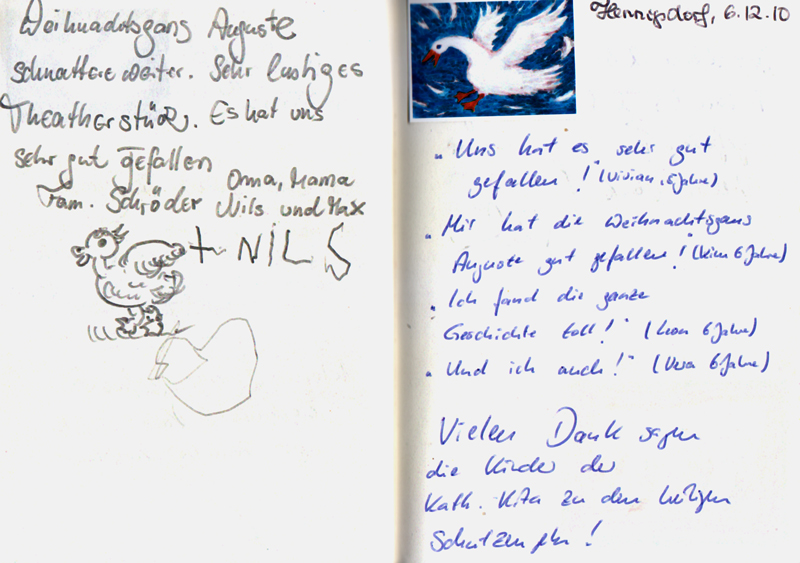 Weihnachtsgans Auguste
schnattere weiter. Sehr lustiges
Theatherstück. Es hat uns
sehr gut gefallen
Oma, Mama
Fam. Schröder Nils und Max
+ NILS
Hennigsdorf, 6.12.10
„Uns hat es sehr gut
gefallen!" (Vivian, 6 Jahre)
„Mir hat die Weihnachtsgans
Auguste gut gefallen!" (Kim 6 Jahre)
„Ich fand die ganze
Geschichte toll!" (Leon 6 Jahre)
„Und ich auch!" (Vera 6 Jahre)
Vielen Dank sagen
die Kinder der
Kath. Kita zu den heiligen
Schutzengeln!